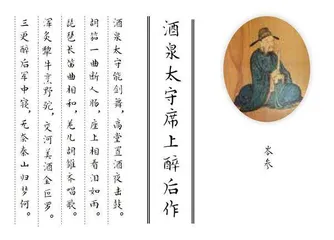 酒泉太守席上醉后作
岑参
酒泉太守能剑舞，高堂置酒夜击鼓。
胡笳一曲断人肠，座上相看泪如雨。
琵琶长笛曲相和，羌儿胡雏齐唱歌。
浑炙犁牛烹野驼，交河美酒金叵罗。
三更醉后军中寝，无奈秦山归梦何。